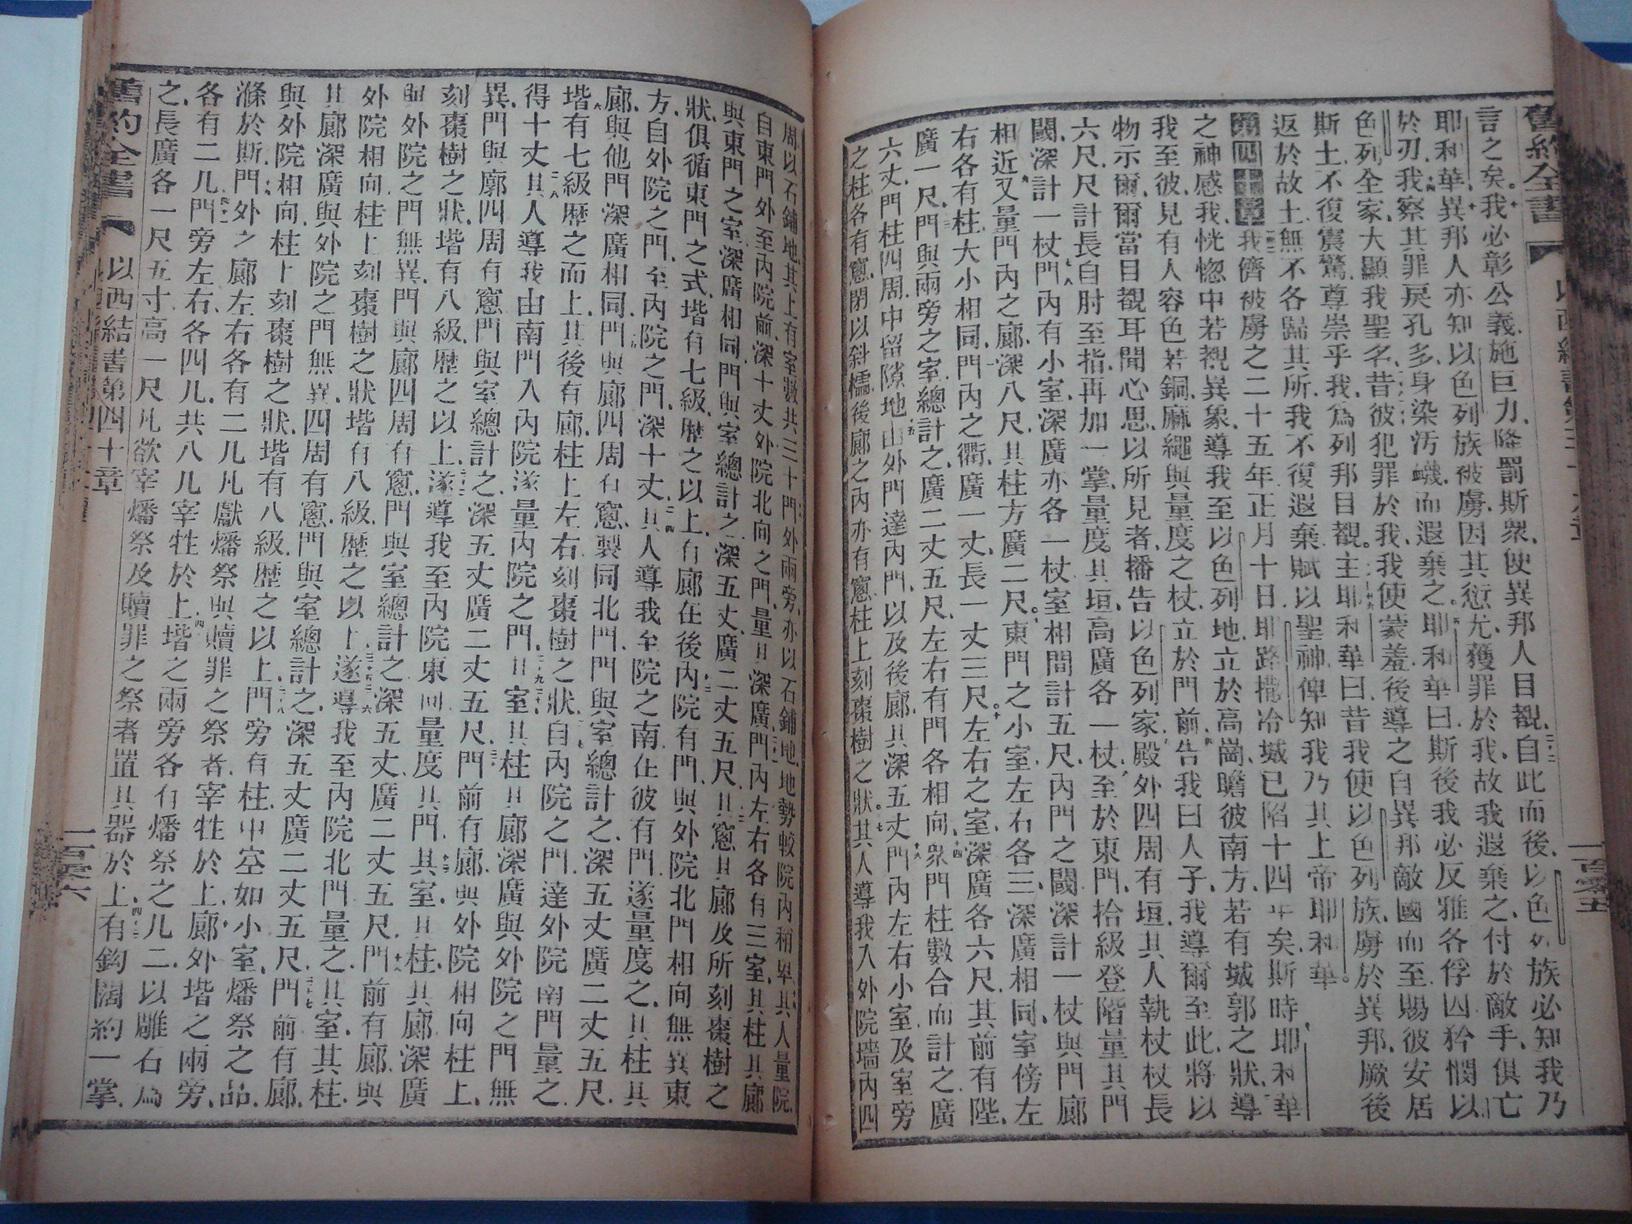 舊約全書
以西結書第三十九章
一百零五
言之矣我必彰公義施巨力降罰斯衆使異邦人目覩自此而後以色列族必知我乃
耶和華異邦人亦知以色列族被虜因其愆尤獲罪於我故我遐棄之付於敵手俱亡
於刃我察其罪戾孔多身染汚衊而遐棄之耶和華曰斯後我必反雅各俘囚矜憫以
色列全家大顯我聖名昔彼犯罪於我我使蒙羞後導之自異邦敵國而至賜彼安居
斯土不復震驚尊崇乎我爲列邦目覩主耶和華曰昔我使以色列族虜於異邦厥後
返於故土無不各歸其所我不復遐棄賦以聖神俾知我乃其上帝耶和華
第四十章我儕被虜之二十五年正月十日耶路撒冷城已陷十四年矣斯時耶和華
之神感我恍惚中若視異象導我至以色列地立於高崗瞻彼南方若有城郭之狀導
我至彼見有人容色若銅麻繩與量度之杖立於門前告我曰人子我導爾至此將以
物示爾爾當目覩耳聞心思以所見者播告以色列家殿外四周有垣其人執杖杖長
六尺尺計長自肘至指再加一掌量度其垣高廣各一杖至於東門拾級登階量其門
閾深計一杖門內有小室深廣亦各一杖室相間計五尺內門之閾深計一杖與門廊
相近又量門內之廊深八尺其柱方廣二尺東門之小室左右各三深廣相同室傍左
右各有柱大小相同門內之衢廣一丈長一丈三尺左右之室深廣各六尺其前有陛
廣一尺門與兩旁之室總計之廣二丈五尺左右有門各相向衆門柱數合而計之廣
六丈門柱四周中留隙地由外門達內門以及後廊其深五丈門內左右小室及室旁
之柱各有窻閉以斜櫺後廊之內亦有窻柱上刻棗樹之狀其人導我入外院墻內四
周以石鋪地其上有室數共三十門外兩旁亦以石鋪地地勢較院內稍卑其人量院
自東門外至內院前深十丈外院北向之門量其深廣門內左右各有三室其柱其廊
與東門之室深廣相同門與室總計之深五丈廣二丈五尺其窻其廊及所刻棗樹之
狀俱循東門之式堦有七級歷之以上有廊在後內院有門與外院北門相向無異東
方自外院之門至內院之門深十丈其人導我至院之南在彼有門遂量度之其柱其
廊與他門深廣相同門與廊四周有窻製同北門門與室總計之深五丈廣二丈五尺
堦有七級歷之而上其後有廊柱上左右刻棗樹之狀自內院之門達外院南門量之
得十丈其人導我由南門入內院遂量內院之門其室其柱其廊深廣與外院之門無
異門與廊四周有窻門與室總計之深五丈廣二丈五尺門前有廊與外院相向柱上
刻棗樹之狀堦有八級歷之以上遂導我至內院東向量度其門其室其柱其廊深廣
與外院之門無異門與廊四周有窻門與室總計之深五丈廣二丈五尺門前有廊與
外院相向柱上刻棗樹之狀堦有八級歷之以上遂導我至內院北門量之其室其柱
其廊深廣與外院之門無異四周有窻門與室總計之深五丈廣二丈五尺門前有廊
與外院相向柱上刻棗樹之狀堦有八級歷之以上門旁有柱中空如小室燔祭之品
滌於斯門外之廊左右各有二几凡獻燔祭與贖罪之祭者宰牲於上廊外堦之兩旁
各有二几門旁左右各四几共八几宰牲於上堦之兩旁各有燔祭之几二以雕石爲
之長廣各一尺五寸高一尺凡欲宰燔祭及贖罪之祭者置其器於上有鈎闊約一掌
舊約全書
以西結書第四十章
一百零六